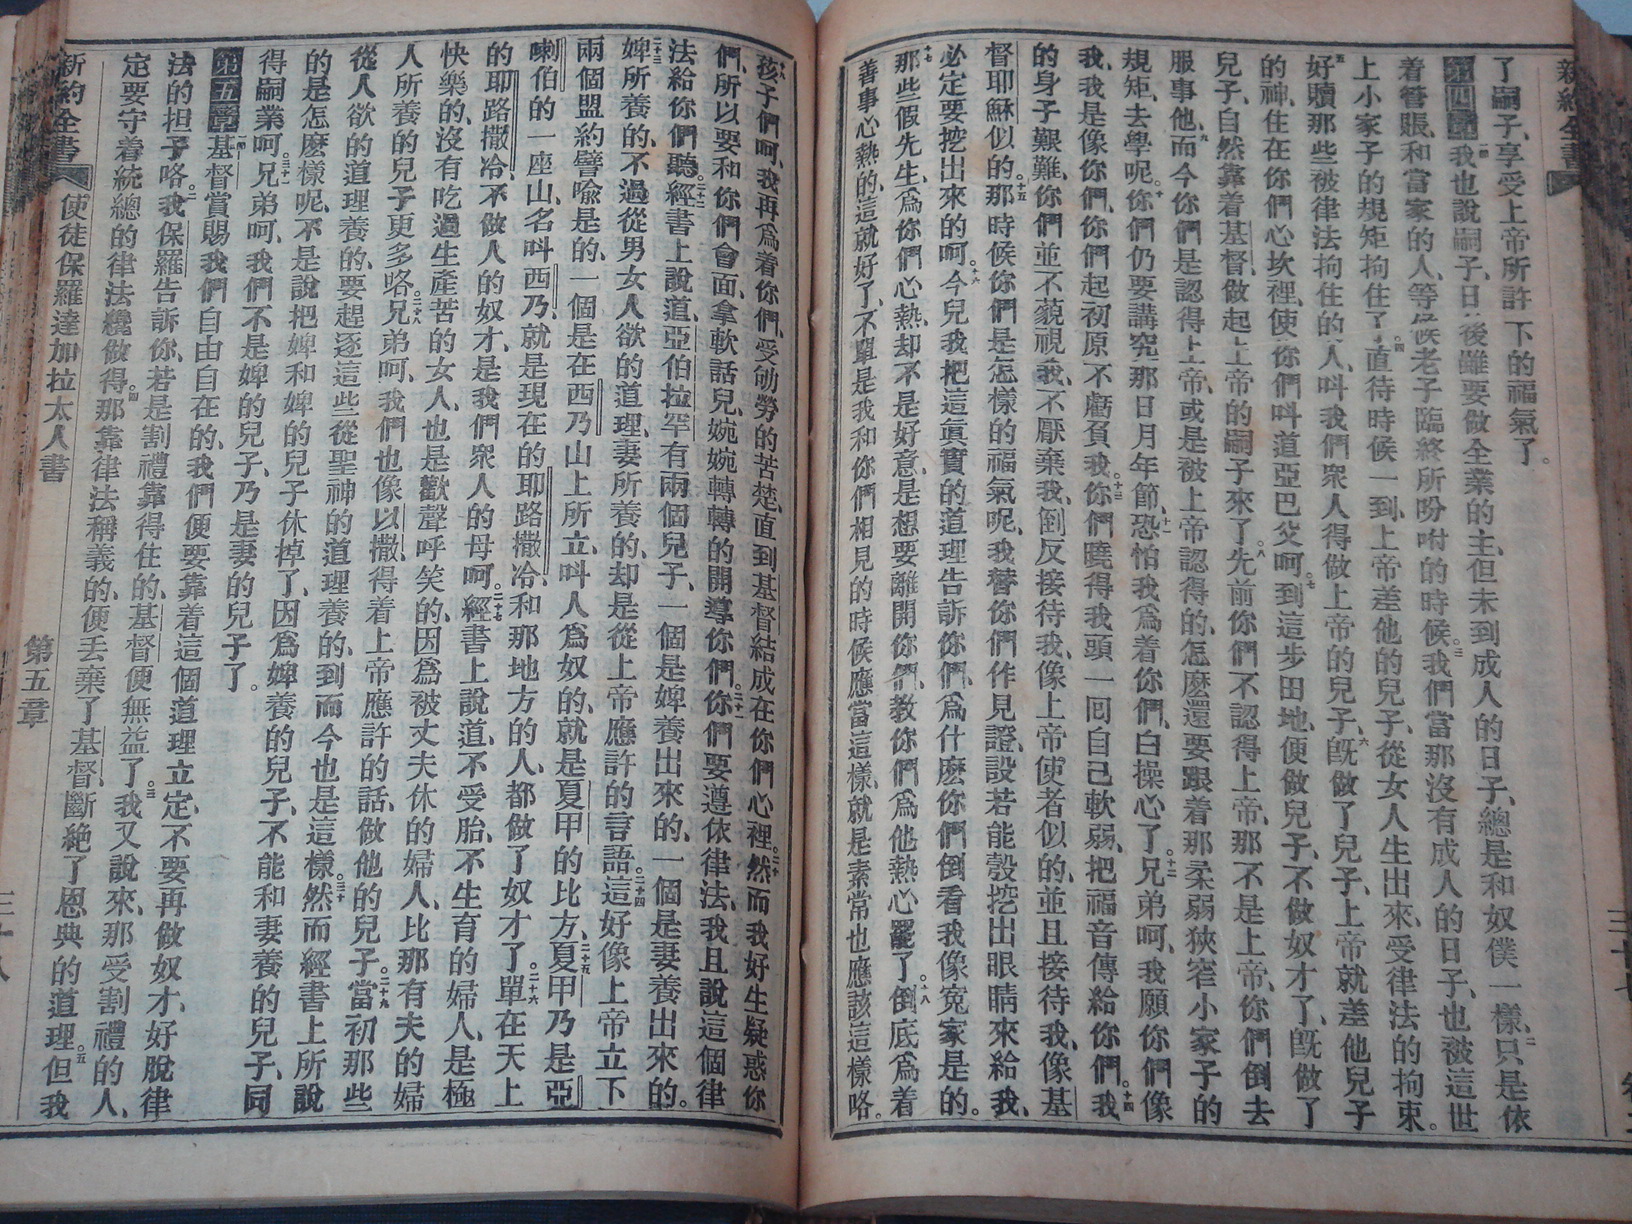 新約全書
了嗣子、享受上帝所許下的福氣了。
第四章 一節 我也說嗣子、日後雖要做全業的主、但未到成人的日子、總是和奴僕一樣、二只是依
着管賬、和當家的人、等候老子臨終所吩咐的時候。三我們當那沒有成人的日子、也被這世
上小家子的規矩拘住了。四直待時候一到、上帝差他的兒子、從女人生出來、受律法的拘束。
五好贖那些被律法拘住的人、叫我們衆人得做上帝的兒子、六旣做了兒子、上帝就差他兒子
的神、住在你們心坎裡、使你們叫道亞巴父呵。七到這步田地、便做兒子、不做奴才了、旣做了
兒子、自然靠着基督、做起上帝的嗣子來了。八先前你們不認得上帝、那不是上帝、你們倒去
服事他、九而今你們是認得上帝、或是被上帝認得的、怎麽還要跟着那柔弱狹窄小家子的
規矩、去學呢。十你們仍要講究那日月年節、十一恐怕我爲着你們、白操心了。十二兄弟呵、我願你們像
我、我是像你們、你們起初原不虧負我。十三你們曉得我頭一囘自己軟弱、把福音傳給你們。十四我
的身子艱難、你們並不藐視我、不厭棄我、倒反接待我、像上帝使者似的、並且接待我、像基
督耶穌似的。十五那時候你們是怎樣的福氣呢、我替你們作見證、設若能彀挖出眼睛來給我、
必定要挖出來的呵。十六今兒我把這眞實的道理告訴你們、爲什麽你們倒看我像寃家是的。
十七那些假先生、爲你們心熱、却不是好意、是想要離開你們、教你們爲他熱心罷了。十八倒底爲着
善事心熱的、這就好了、不單是我和你們相見的時候應當這樣、就是素常也應該這樣咯。
十九孩子們呵、我再爲着你們、受劬勞的苦楚、直到基督結成在你們心裡。二十然而我好生疑惑你
們、所以要和你們會面、拿軟話兒、婉婉轉轉的開導你們。二十一你們要遵依律法、我且說這個律
法給你們聽。二十二經書上說道、亞伯拉罕有兩個兒子、一個是婢養出來的、一個是妻養出來的。
二十三婢所養的、不過從男女人欲的道理、妻所養的、却是從上帝應許的言語。二十四這好像上帝立下
兩個盟約譬喻是的、一個是在西乃山上所立、叫人爲奴的、就是夏甲的比方、二十五夏甲乃是亞
喇伯的一座山、名叫西乃、就是現在的耶路撒冷、和那地方的人、都做了奴才了。二十六單在天上
的耶路撒冷、不做人的奴才、是我們衆人的母呵。二十七經書上說道、不受胎、不生育的婦人、是極
快樂的、沒有吃過生產苦的女人、也是歡聲呼笑的、因爲被丈夫休的婦人、比那有夫的婦
人所養的兒子更多咯。二十八兄弟呵、我們也像以撒、得着上帝應許的話、做他的兒子。二十九當初那些
從人欲的道理養的、要趕逐這些從聖神的道理養的、到而今也是這樣。三十然而經書上所說
的是怎麽樣呢、不是說把婢和婢的兒子休掉了、因爲婢養的兒子、不能和妻養的兒子、同
得嗣業呵。三十一兄弟呵、我們不是婢的兒子、乃是妻的兒子了。
第五章 一節 基督賞賜我們自由自在的、我們便要靠着這個道理立定、不要再做奴才、好脫律
法的担子咯。二我保羅告訴你、若是割禮靠得住的、基督便無益了。三我又說來、那受割禮的人、
定要守着統總的律法纔做得。四那靠律法稱義的、便丢棄了基督、斷絶了恩典的道理。五但我
新約全書 使徒保羅達加拉太人書 第五章